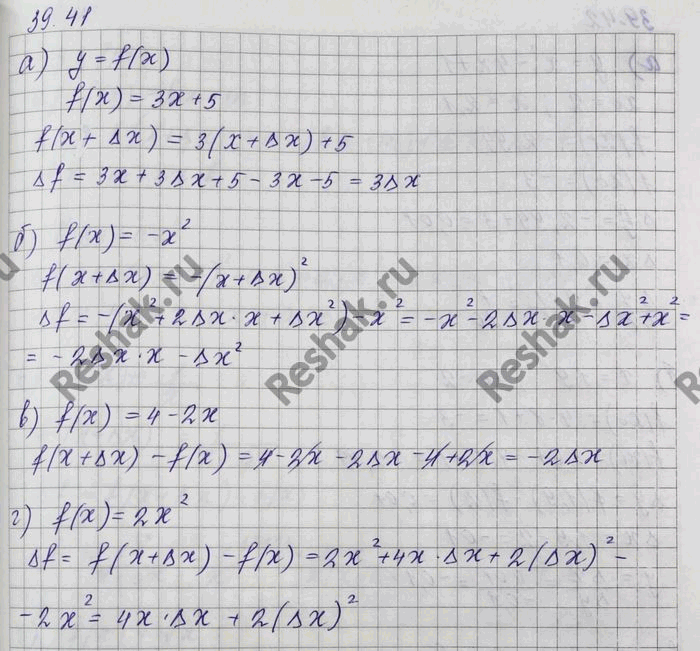 39.41
а) y = f(x)
f(x) = 3x + 5
f(x + Δx) = 3(x + Δx) + 5
Δf = 3x + 3Δx + 5 - 3x - 5 = 3Δx
б) f(x) = -x²
f(x + Δx) = -(x + Δx)²
Δf = -(x² + 2Δx·x + Δx²) - x² = -x² - 2Δx·x - Δx² + x² =
= -2Δx·x - Δx²
в) f(x) = 4 - 2x
f(x + Δx) - f(x) = 4 - 2x - 2Δx - 4 + 2x = -2Δx
г) f(x) = 2x²
Δf = f(x + Δx) - f(x) = 2x² + 4x·Δx + 2(Δx)² -
- 2x² = 4x·Δx + 2(Δx)²
Reshak.ru
Reshak.ru
Reshak.ru